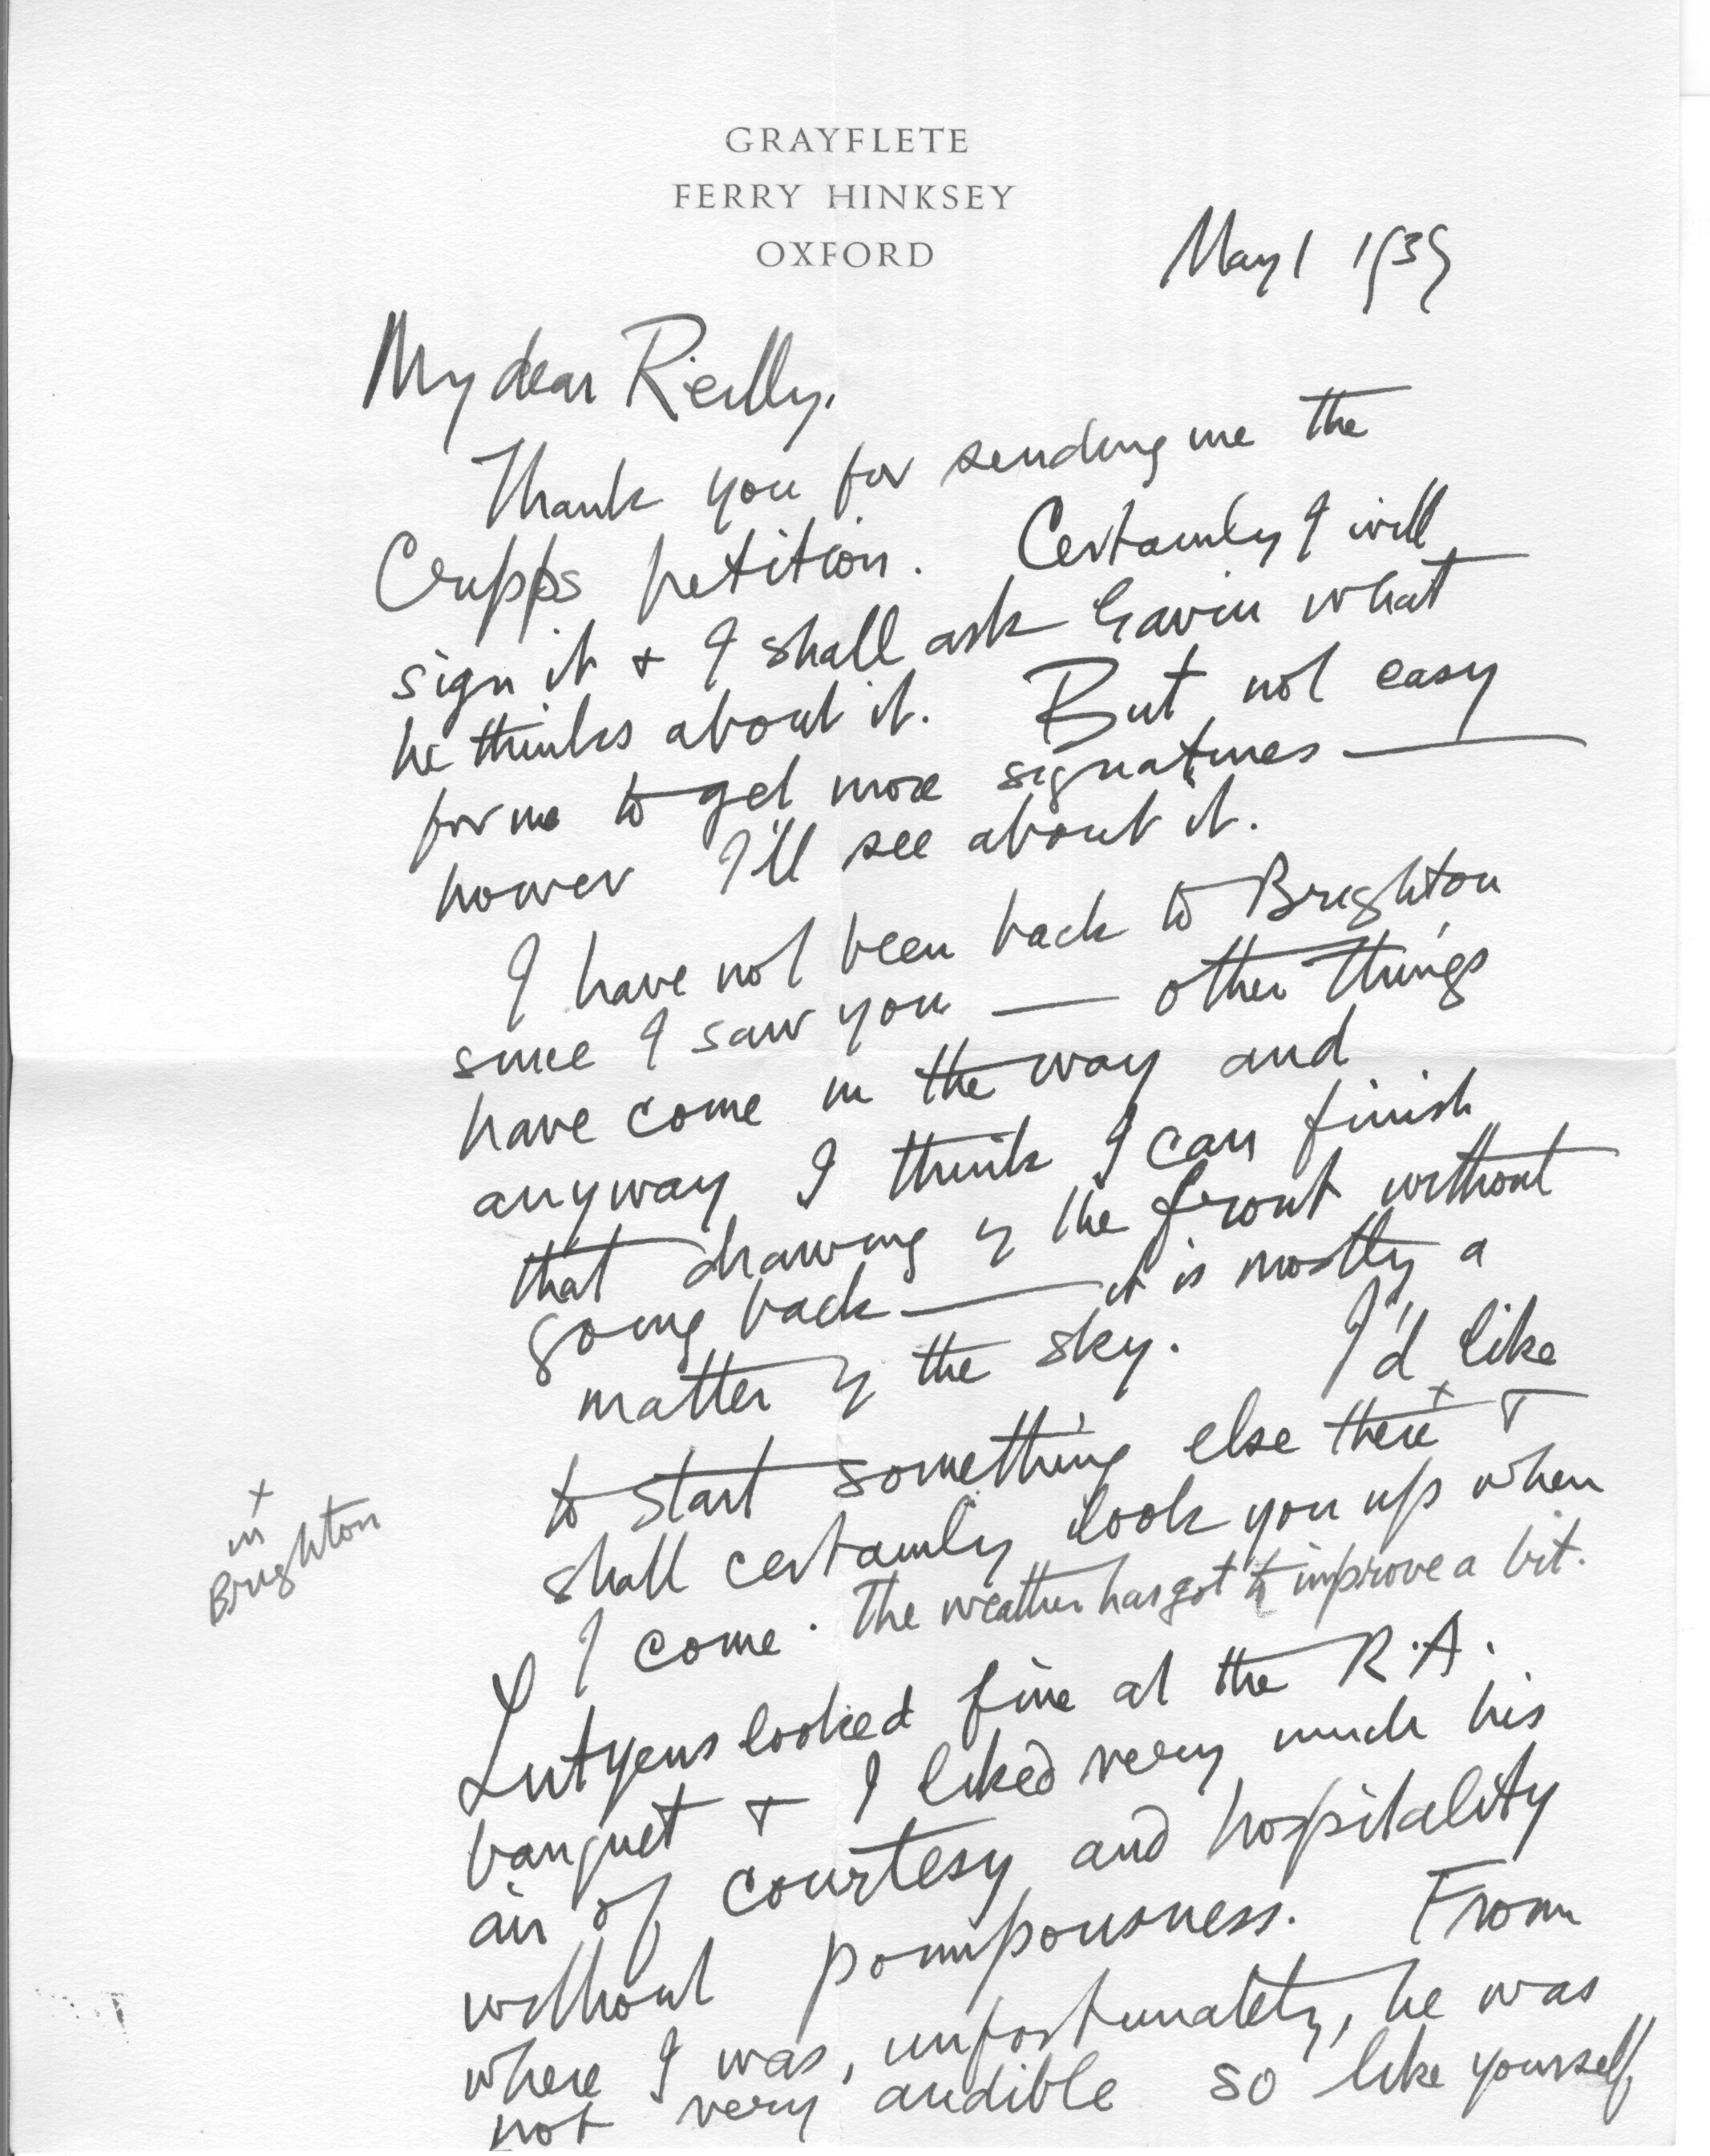 GRAYFLETE
FERRY HINKSEY
OXFORD
May 1 1939
My dear Reilly,
Thank you for sending me the
Cripps petition. Certainly I will
sign it + I shall ask Gavin what
he thinks about it. But not easy
for me to get more signatures —
however I'll see about it.
I have not been back to Brighton
since I saw you — other things
have come in the way and
anyway I think I can finish
that drawing of the front without
going back — it is mostly a
matter of the sky. I'd like
to start something else there x +
x
in
Brighton
shall certainly look you up when
I come. The weather has got to improve a bit.
Lutyens looked fine at the R.A.
banquet + I liked very much his
air of courtesy and hospitality
without pompousness. From
where I was, unfortunately, he was
not very audible so like yourself